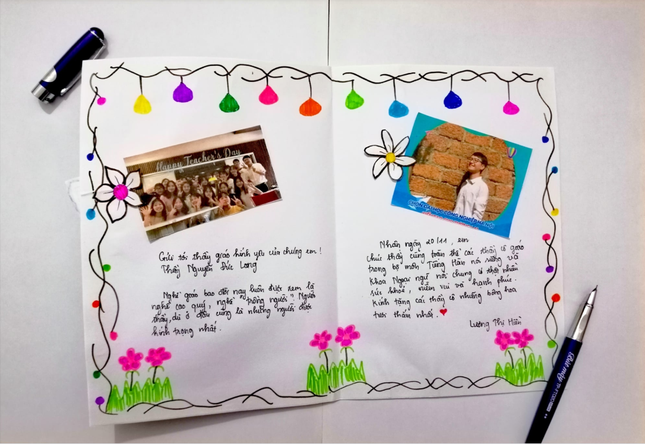 Happy Teacher's Day
Gửi tới thầy giáo kính yêu của chúng em!
Thầy Nguyễn Đức Long
Nghề giáo bao đời nay luôn được xem là
nghề cao quý, nghề "trồng người". Người
thầy, dù ở đâu cũng là những người được
kính trọng nhất.
Nhân ngày 20/11, em
chúc thầy cùng toàn thể các thầy cô giáo
trong bộ môn Tiếng Hàn nói riêng và
Khoa Ngoại ngữ nói chung có thật nhiều
sức khoẻ, niềm vui và hạnh phúc.
Kính tặng các thầy cô những bông hoa
tươi thắm nhất.
Lương Thị Hiền